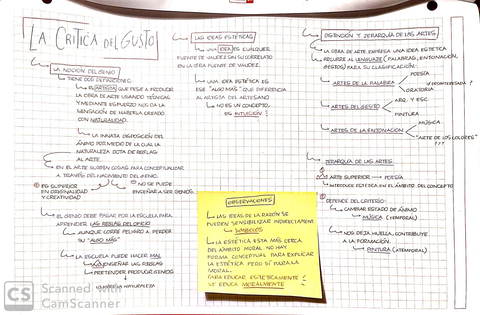 LA CRÍTICA DEL GUSTO
LA NOCIÓN DEL GENIO
TIENE DOS DEFINICIONES:
EL ARTISTA QUE PESE A PRODUCIR
LA OBRA DE ARTE USANDO TÉCNICAS
Y MEDIANTE ESFUERZO NOS DA LA
SENSACIÓN DE HABERLA CREADO
CON NATURALIDAD.
LA INNATA DISPOSICIÓN DEL
ÁNIMO POR MEDIO DE LA CUAL LA
NATURALEZA DOTA DE REGLAS
AL ARTE.
EN EL ARTE SURGEN COSAS PARA CONCEPTUALIZAR
A TRAVÉS DEL NACIMIENTO DEL GENIO.
① ES SUPERIOR
EN ORIGINALIDAD
Y CREATIVIDAD
② NO SE PUEDE
ENSEÑAR A SER GENIOS.
EL GENIO DEBE PASAR POR LA ESCUELA PARA
APRENDER LAS REGLAS DEL OFICIO
AUNQUE CORRE PELIGRO A PERDER
SU "ALGO MÁS"
LA ESCUELA PUEDE HACER MAL
ENSEÑAR LAS REGLAS
PRETENDER PRODUCIR GENIOS
NATURALEZA
LAS IDEAS ESTÉTICAS
UNA IDEA ES CUALQUIER
FUENTE DE VALIDEZ SIN SU CORRELATO
EN LA OTRA FUENTE DE VALIDEZ.
UNA IDEA ESTÉTICA ES
ESE "ALGO MÁS" QUE DIFERENCIA
AL ARTISTA DEL ARTESANO
NO ES UN CONCEPTO,
ES INTUICIÓN
OBSERVACIONES
LAS IDEAS DE LA RAZÓN SE
PUEDEN SENSIBILIZAR INDIRECTAMENTE.
SÍMBOLOS
LA ESTÉTICA ESTÁ MÁS CERCA
DEL ÁMBITO MORAL. NO HAY
FORMA CONCEPTUAL PARA EXPLICAR
LA ESTÉTICA PERO SÍ PARA LA
MORAL.
PARA EDUCAR ESTÉTICAMENTE
SE EDUCA MORALMENTE
DISTINCIÓN Y JERARQUÍA DE LAS ARTES
LA OBRA DE ARTE EXPRESA UNA IDEA ESTÉTICA
RECURRE AL LENGUAJE (PALABRAS, ENTONACIÓN,
GESTO) PARA SU CLASIFICACIÓN:
ARTES DE LA PALABRA
POESÍA
ORATORIA
ARTES DEL GESTO
ARQ. Y ESC.
PINTURA
ARTES DE LA ENTONACIÓN
MÚSICA
"ARTE DE LOS COLORES"
???
JERARQUÍA DE LAS ARTES
① ARTE SUPERIOR → POESÍA
INTRODUCE ESTÉTICA EN EL ÁMBITO DEL CONCEPTO
② DEPENDE DEL CRITERIO:
CAMBIAR ESTADO DE ÁNIMO
MÚSICA (TEMPORAL)
NOS DEJA HUELLA, CONTRIBUYE
A LA FORMACIÓN.
PINTURA (ATEMPORAL)
CS Scanned with
CamScanner